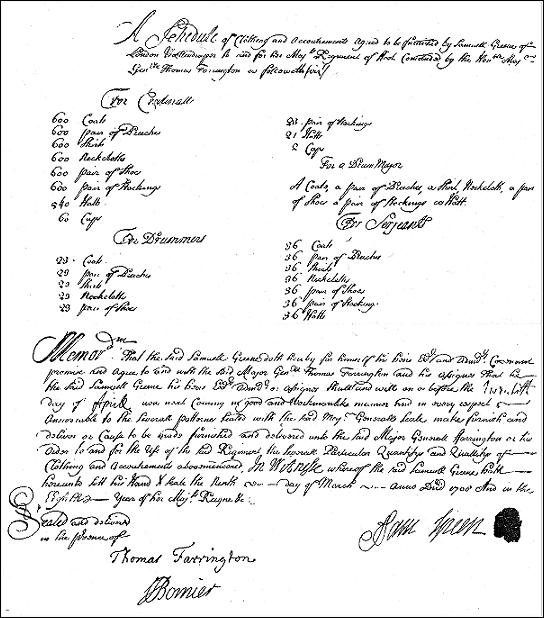 A Schedule of Clothing and Accoutrements Agreed to be furnished by Samuell Greene of
London Woollendraper to and for her Majts Regiment of Foot Comanded by the Honble Major
Genll Thomas Farrington as followeth viz
For Centinalls
600 Coats
600 pair of Breeches
600 Shirts
600 Neckcloths
600 pair of Shoes
600 pair of Stockings
540 Hatts
60 Caps
For Drummers
23 Coats
29 pair of Breeches
29 Shirts
29 Neckcloths
29 pair of Shoes
pair of Stockings
21 Hatts
Caps
For a Drum Major
A Coate, a pair of Breeches, a Shirt, Neckcloth, a pair
of Shoes a pair of Stockings & Hatt.
For Serjeants
36 Coats
36 pair of Breeches
36 Shirts
36 Neckcloths
36 pair of Shoes
36 pair of Stocking
36 Hatts
Memordm That the said Samuell Greene doth hereby for himself his heirs Exrs and Admrs Covenant
promise and Agree to and with the said Major Genll Thomas Farrington and his Assignes That he
the said Samuell Greene his heirs Exrs Admrs or Assignes shall and will on or before the
day of Aprill now next Comeing in good and Workmanlike manner and in every respect
Answerable to the Severall patterns Sealed with the said Major Generalls Seale make furnish and
deliver or Cause to be made furnished and delivered unto the said Major Generall Farrington or his
Order to and for the Use of the said Regiment the Severall Particulars Quantitys and Quallitys of
Clothing and Accoutrements abovemenconed. In Witnesse whereof the said Samuell Greene hath
hereunto sett his Hand & Seale the Tenth day of March Anno Dni 1708 And in the
Year of her Majts Reigne &c
Sealed and delivered
in the presence of
Thomas Farrington
Sam Green